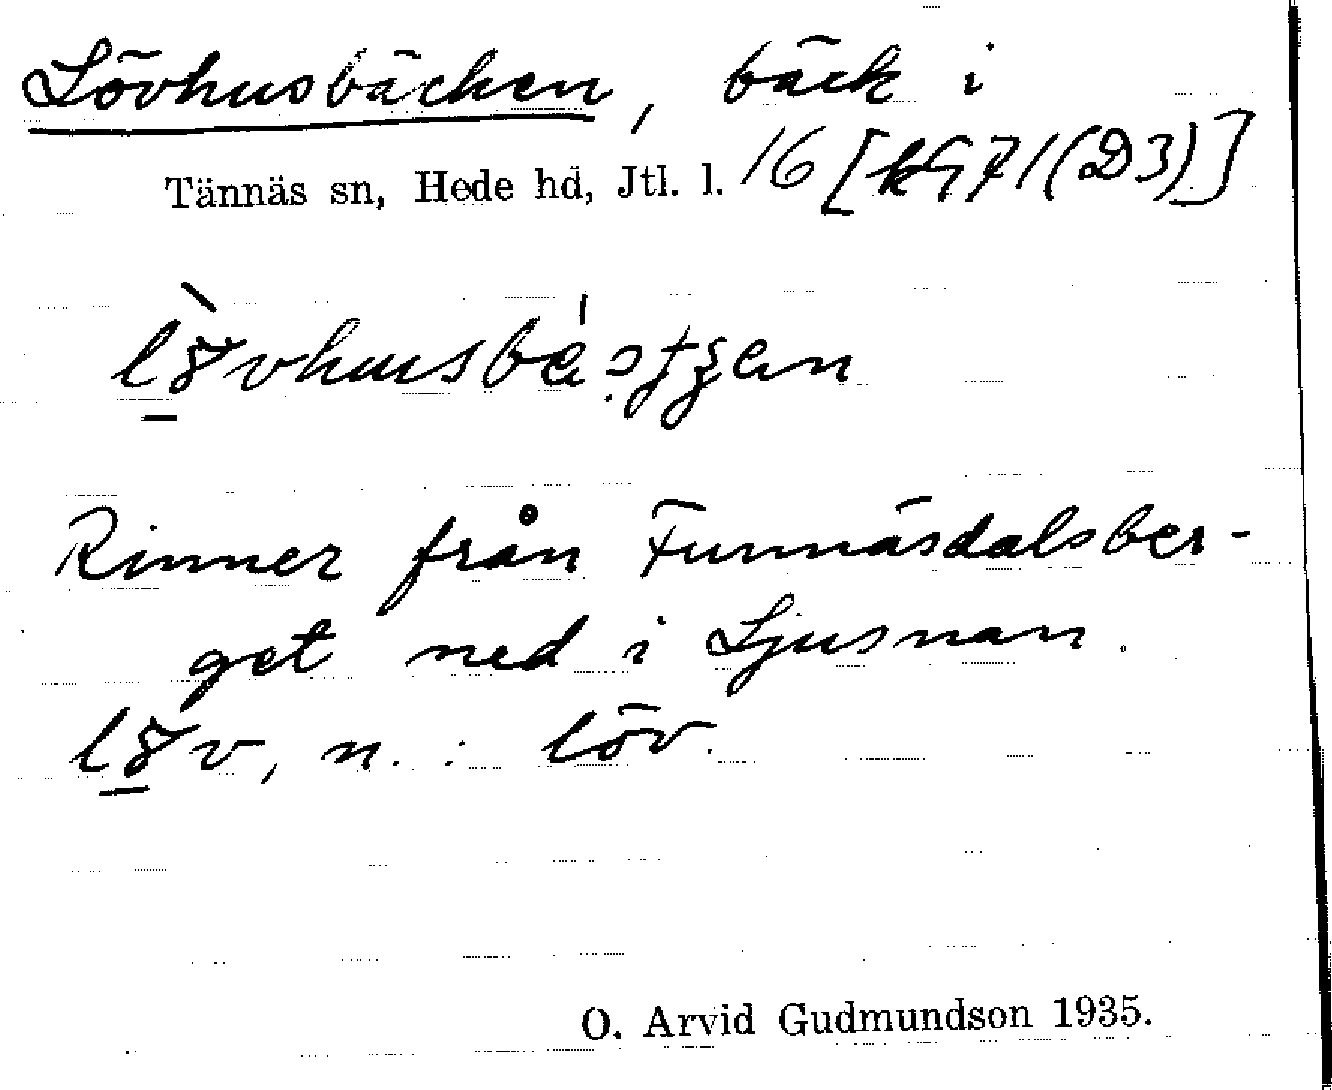 Lövhusbäcken, bäck i
Tännäs sn, Hede hd, Jtl. l. 16 [kG71(D3)]
Rinner från Funnäsdalsber-
get ned i Ljusnan.
v, n. : löv.
O. Arvid Gudmundson 1935.